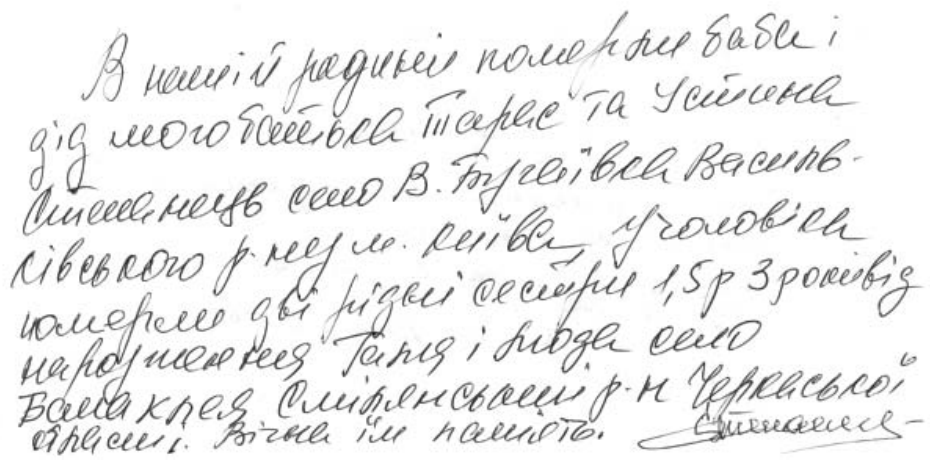 В нашій родині померли баба і
дід мого батька Тарас та Устина
Степанець село В. Бугаївка Васильківського
ківського р-ну м. Києва, у чоловіка
померли дві рідні сестри 1,5 р 3 роки від
народження Галя і Люда село
Балаклея Смілянський р-н Черкаської
області. Вічна їм память.